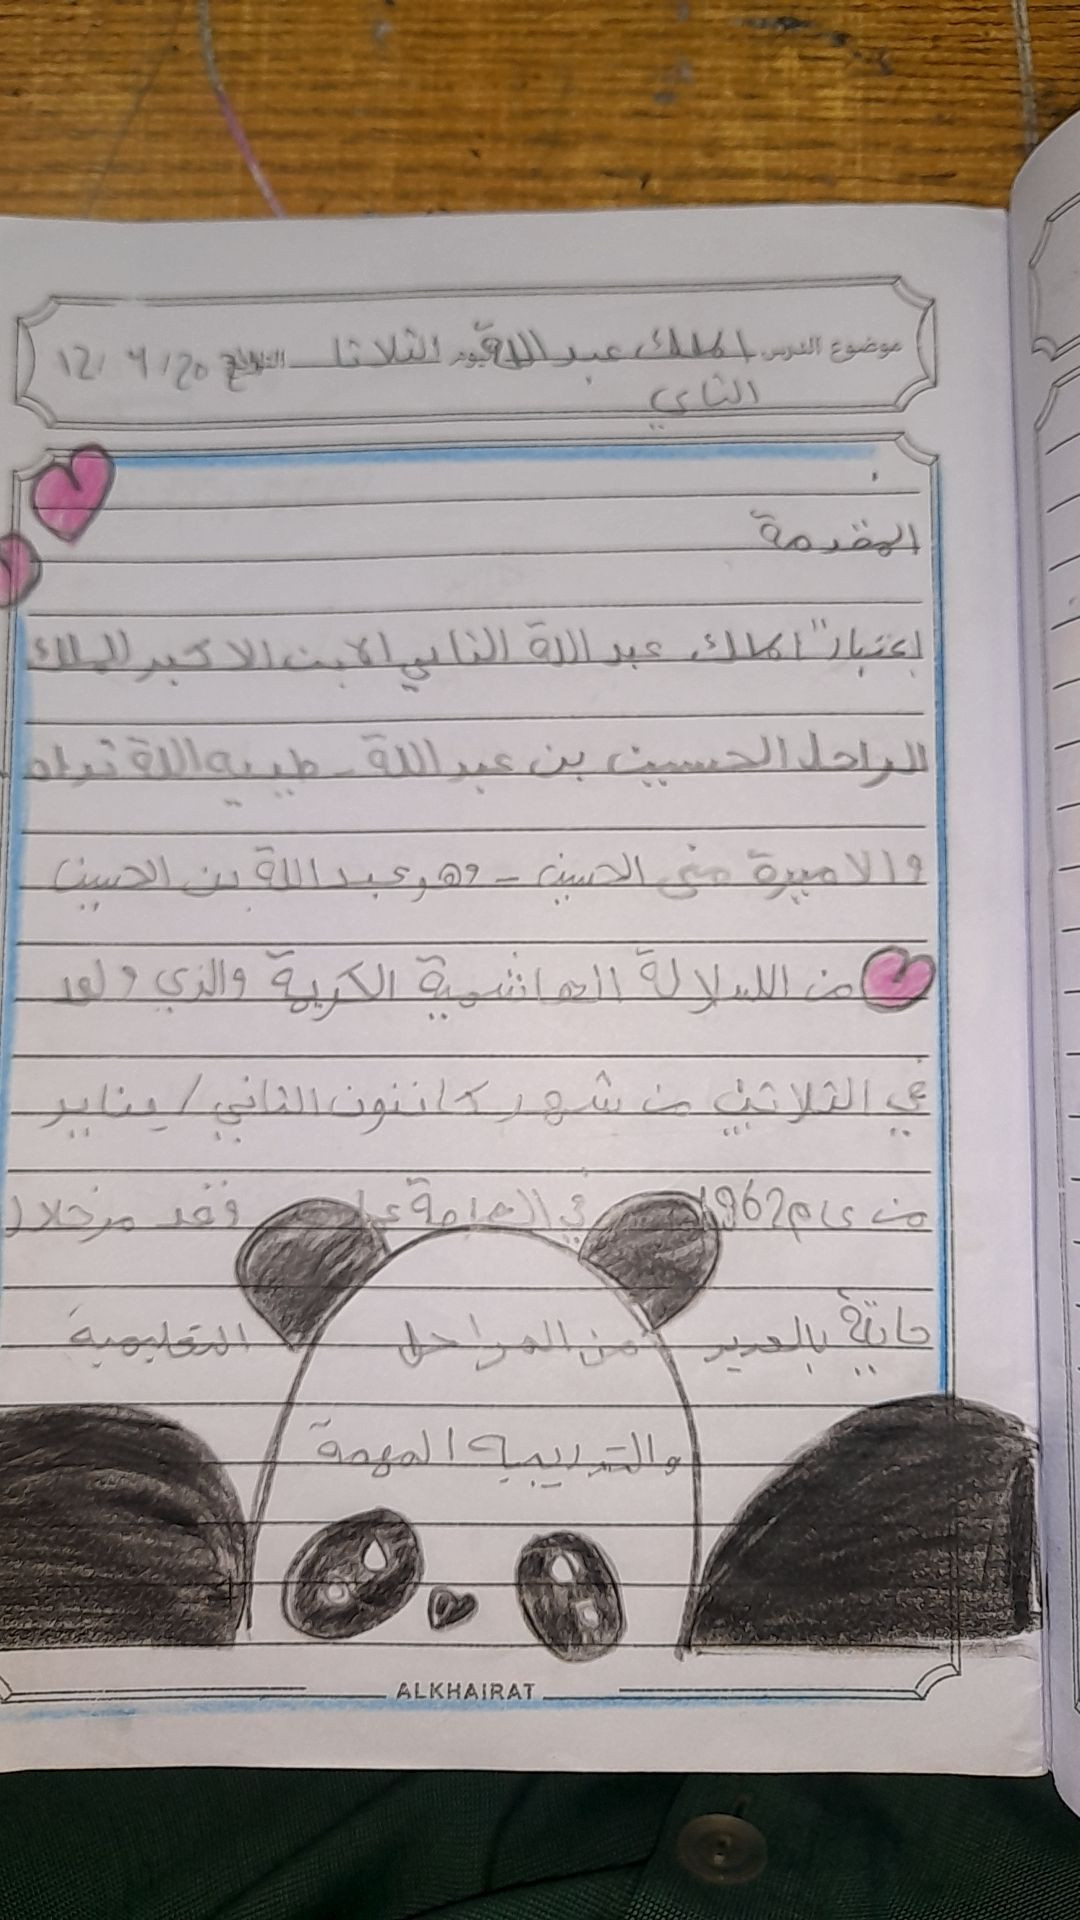 موضوع الدرس الملك عبداللة اليوم الثلاثا التاريخ 12/ 9 /20
الثاني
المقدمة
إعتبار" الملك عبد اللة الثاني الابن الاكبر للملك
الراحل الحسين بن عبد اللة - طيب اللة تراه
والاميرة منى الحسين - وهو عبد اللة بن الحسين
من السلالة الهاشمية الكريمة والذي ولد
في الثلاثين من شهر كاننون الثاني / يناير
من عام 1962 في العاصمة فقد مر خلال
حاتة بالعديد من المراحل التعليمية
والتدريبية المهمة
ALKHAIRAT